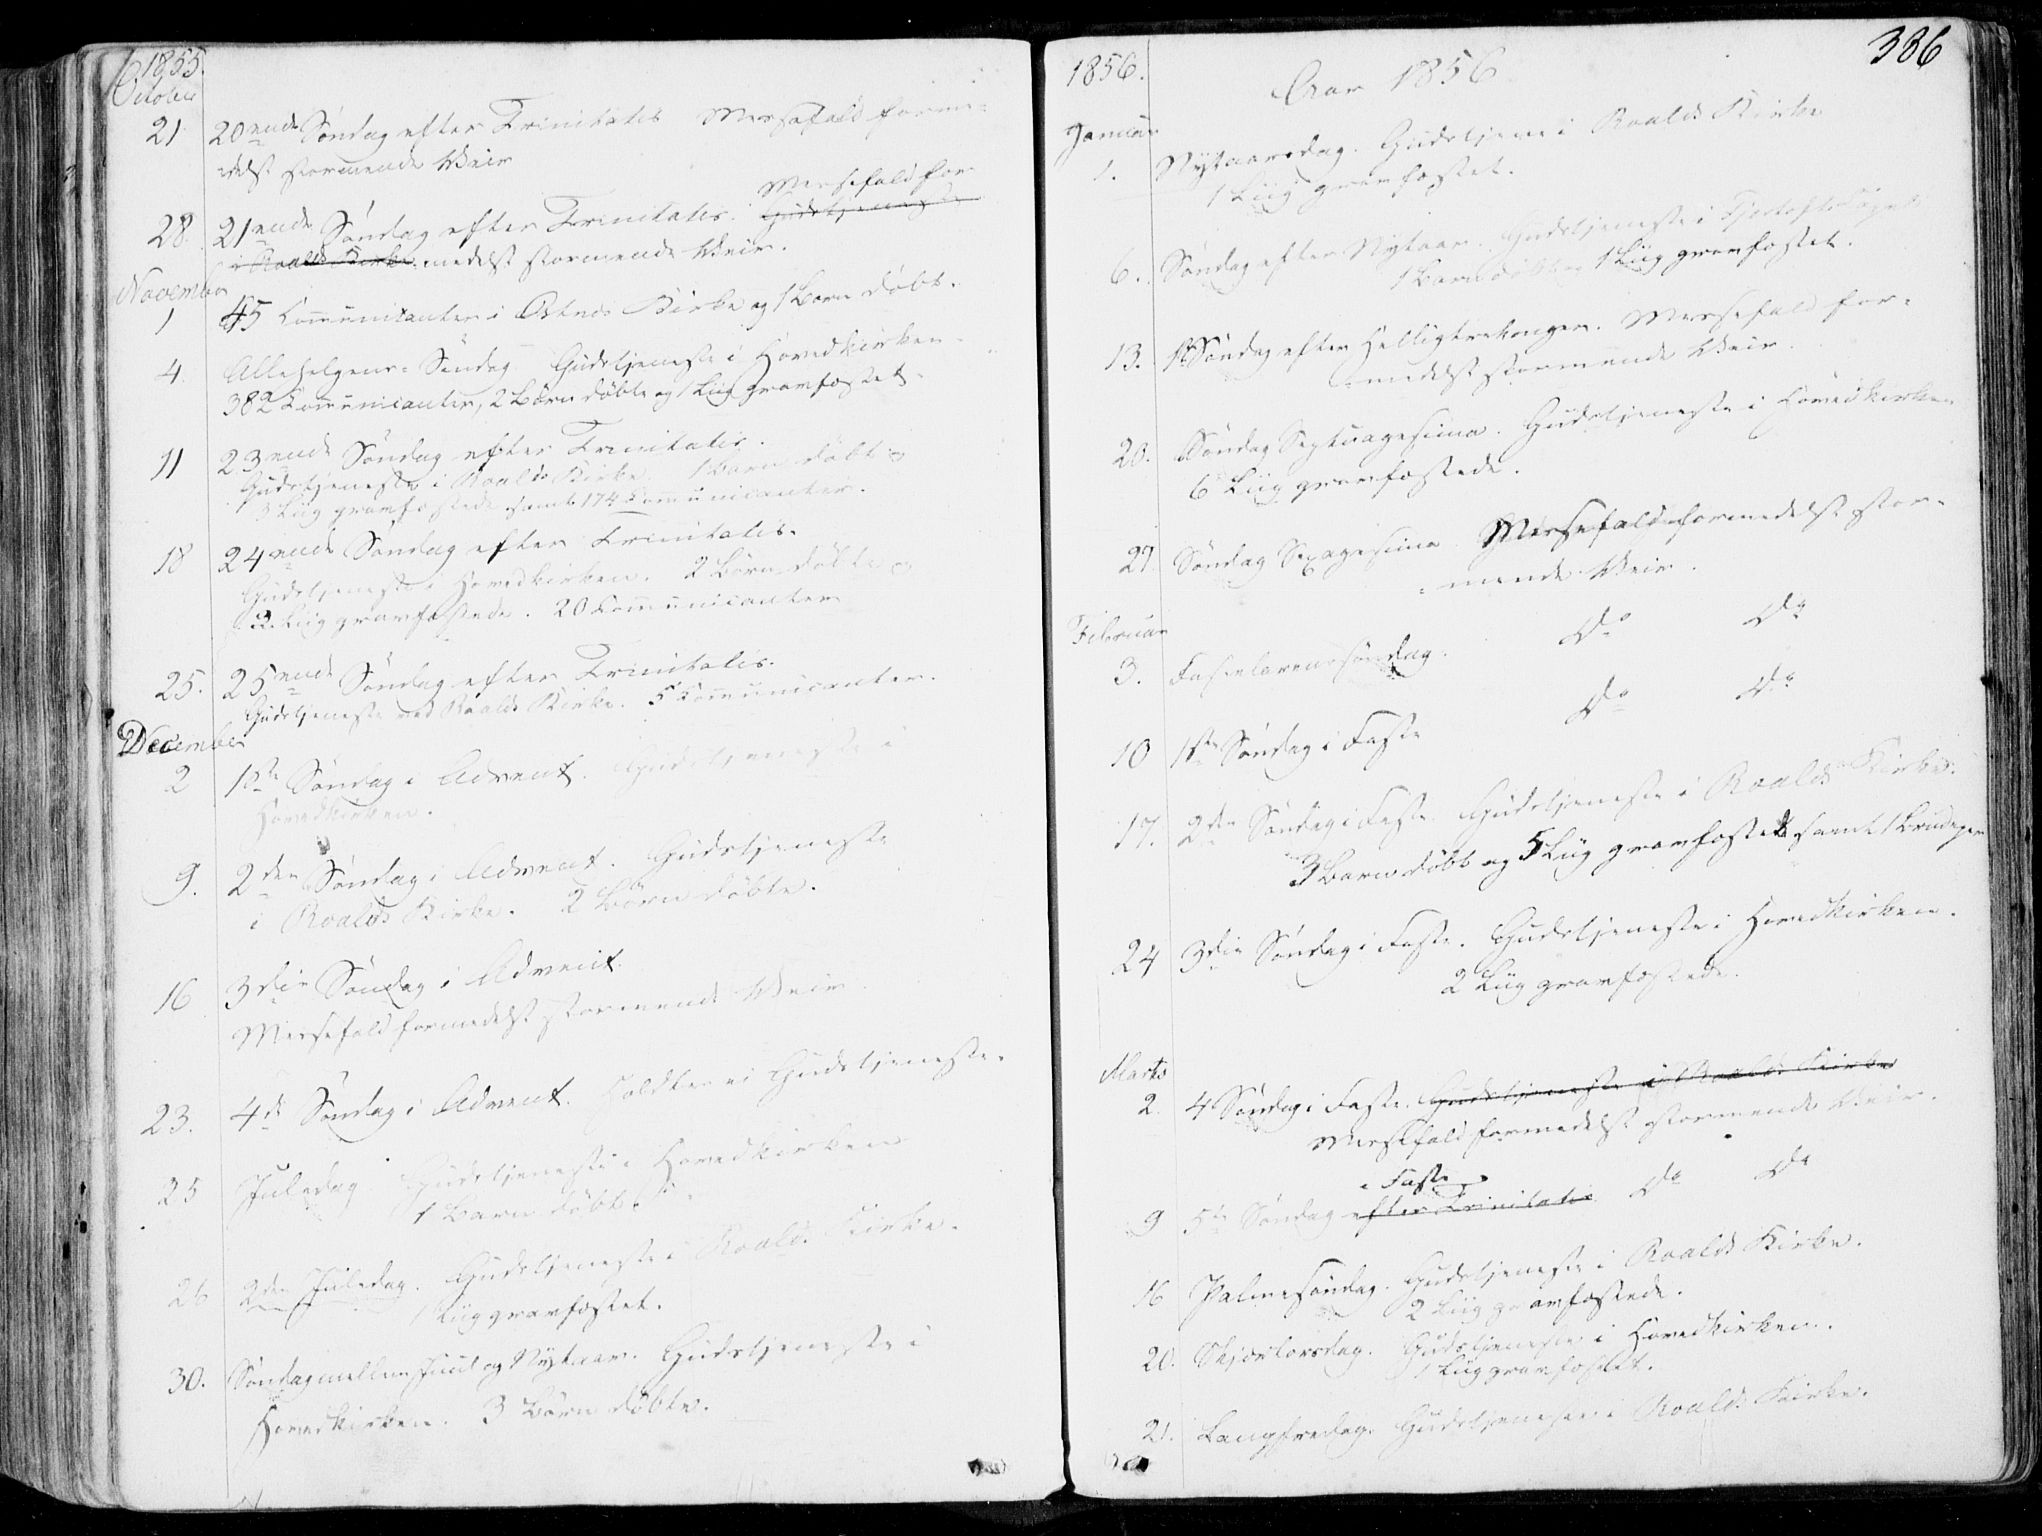 1855.
October
21 20ende Søndag efter Trinitatis Messefald forme-
delst stormende Veir
Messefald for
28. 21ende Søndag efter Trinitatis. Gudstjeneste
i Roalds Kirke. medelst stormende Veir.
November
1 45 Communicanter i Østnes Kirke og 1 Barn døbt.
4. Allehelgens-Søndag. Gudstjeneste i Hovedkirken.
382 Communicanter, 2 Børn døbte og 1 Liig gravfæstet.
11 23ende Søndag efter Trinitatis.
Gudstjeneste i Roalds Kirke. 1 Barn døbt og
3 Liig gravfæstede samt 174 Communicanter.
18 24ende Søndag efter Trinitatis.
Gudstjeneste i Hovedkirken. 2 Børn døbte og
2 Liig gravfæstede. 20 Communicanter
25. 25ende Søndag efter Trinitatis.
Gudstjeneste ved Roalds Kirke. 5 Communicanter.
December
2 1ste Søndag i Advent. Gudstjeneste i
Hovedkirken.
9. 2den Søndag i Advent. Gudstjeneste
i Roalds Kirke. 2 Børn døbte.
16 3die Søndag i Advent.
Messefald formedelst stormende Veir.
23. 4de Søndag i Advent. Holdtes ei Gudstjeneste.
25 Juledag. Gudstjeneste i Hovedkirken
1 Barn døbt.
26 2den Juledag. Gudstjeneste i Roalds Kirke.
1 Liig gravfæstet.
30. Søndag mellem Juul og Nytaar. Gudstjeneste i
Hovedkirken. 3 Børn døbte.
386
1856.
Aar 1856
Januar
1. Nytaarsdag. Gudstjeneste i Roalds Kirke
1 Liig gravfæstet.
6. Søndag efter Nytaar. Gudstjeneste i
1 Barn døbt og 1 Liig gravfæstet.
13. 1ste Søndag efter Helligtrekonger. Messefald for-
medelst stormende Veir.
20. Søndag Septuagesima. Gudstjeneste i Hovedkirken
6 Liig gravfæstede.
27. Søndag Sexagesima Messefald formedelst stor-
mende Veir.
Februar
3. Fastelavnssøndag. Do Do
10 1ste Søndag i Faste Do Do
17. 2den Søndag i Faste. Gudstjeneste i Roalds Kirke.
3 Barn døbt og 5 Liig gravfæstede samt 1 Brudepar
24 3die Søndag i Faste. Gudstjeneste i Hovedkirken.
2 Liig gravfæstede.
Marts
2. 4 Søndag i Faste. Gudstjeneste i Roalds Kirke
Messefald formedelst stormende Veir.
i Faste
9 5te Søndag efter Trinitatis Do Do
16 Palmesøndag. Gudstjeneste i Roalds Kirke.
2 Liig gravfæstede.
20. Skjærtorsdag. Gudstjeneste i Hovedkirken.
1 Liig gravfæstet.
21. Langfredag. Gudstjeneste i Roalds Kirke.